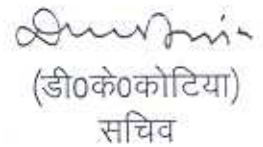 (डी0के0कोटिया)
सचिव